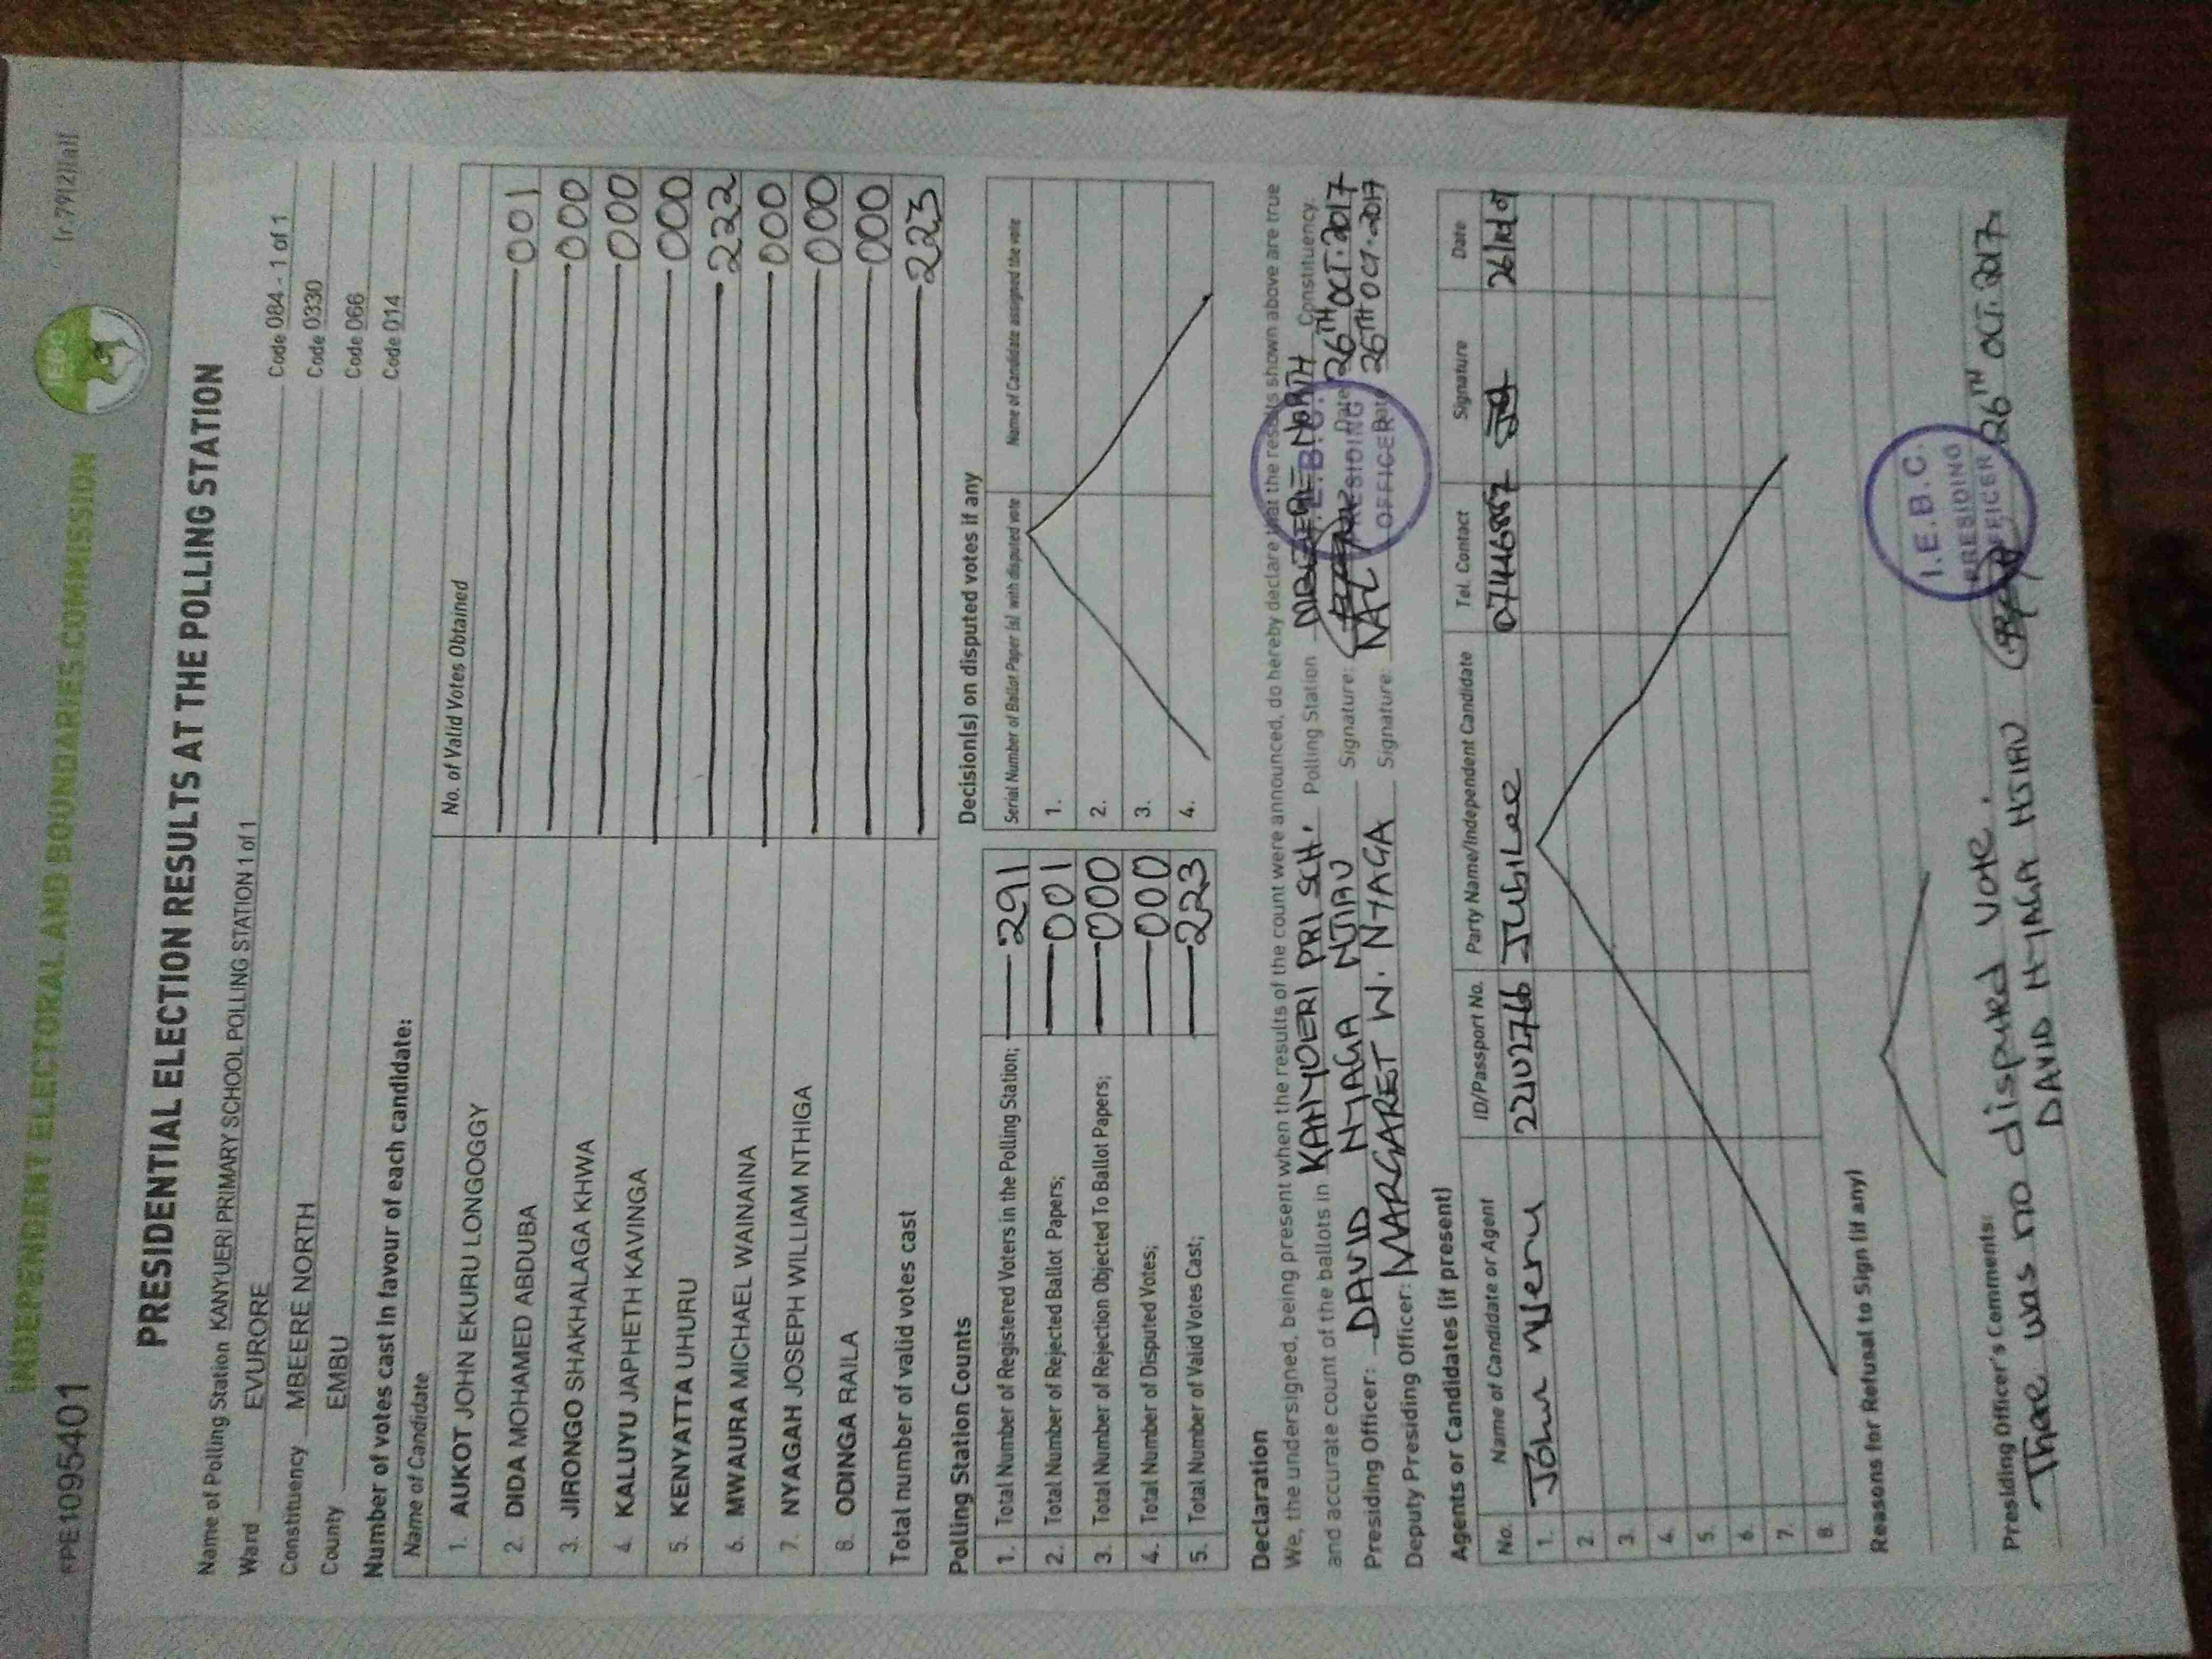 INDEPENDENT ELECTORAL AND BOUNDARIES COMMISSION
IEBC
(r.79(2)(a))
PRESIDENTIAL ELECTION RESULTS AT THE POLLING STATION
Name of Polling Station KANYUERI PRIMARY SCHOOL POLLING STATION 1 of 1 Code 084 - 1 of 1
Ward EVURORE Code 0330
Constituency MBEERE NORTH Code 066
County EMBU Code 014
Number of votes cast in favour of each candidate:
Name of Candidate No. of Valid Votes Obtained
1. AUKOT JOHN EKURU LONGOGGY 001
2. DIDA MOHAMED ABDUBA 000
3. JIRONGO SHAKHALAGA KHWA 000
4. KALUYU JAPHETH KAVINGA 000
5. KENYATTA UHURU 222
6. MWAURA MICHAEL WAINAINA 000
7. NYAGAH JOSEPH WILLIAM NTHIGA 000
8. ODINGA RAILA 000
Total number of valid votes cast 223
Polling Station Counts
1. Total Number of Registered Voters in the Polling Station; 291
2. Total Number of Rejected Ballot Papers; 001
3. Total Number of Rejection Objected To Ballot Papers; 000
4. Total Number of Disputed Votes; 000
5. Total Number of Valid Votes Cast; 223
Decision(s) on disputed votes if any
Serial Number of Ballot Paper (s) with disputed vote Name of Candidate assigned the vote
1.
2.
3.
4.
Declaration
We, the undersigned, being present when the results of the count were announced, do hereby declare that the results shown above are true
and accurate count of the ballots in KANYUERI PRI SCH. Polling Station MBEERE NORTH Constituency.
Presiding Officer: DAVID NYAGA NJIRU Signature: Date 26TH OCT. 2017
Deputy Presiding Officer: MARGARET W. NYAGA Signature: Date 26TH OCT. 2017
I.E.B.C.
PRESIDING
OFFICER
Agents or Candidates (if present)
No. Name of Candidate or Agent ID/Passport No. Party Name/Independent Candidate Tel. Contact Signature Date
1. John Njeru Jubilee
2.
3.
4.
5.
6.
7.
8.
Reasons for Refusal to Sign (if any)
Presiding Officer's Comments:
There was no disputed vote.
DAVID NYAGA NJIRU 26TH OCT. 2017
I.E.B.C.
PRESIDING
OFFICER